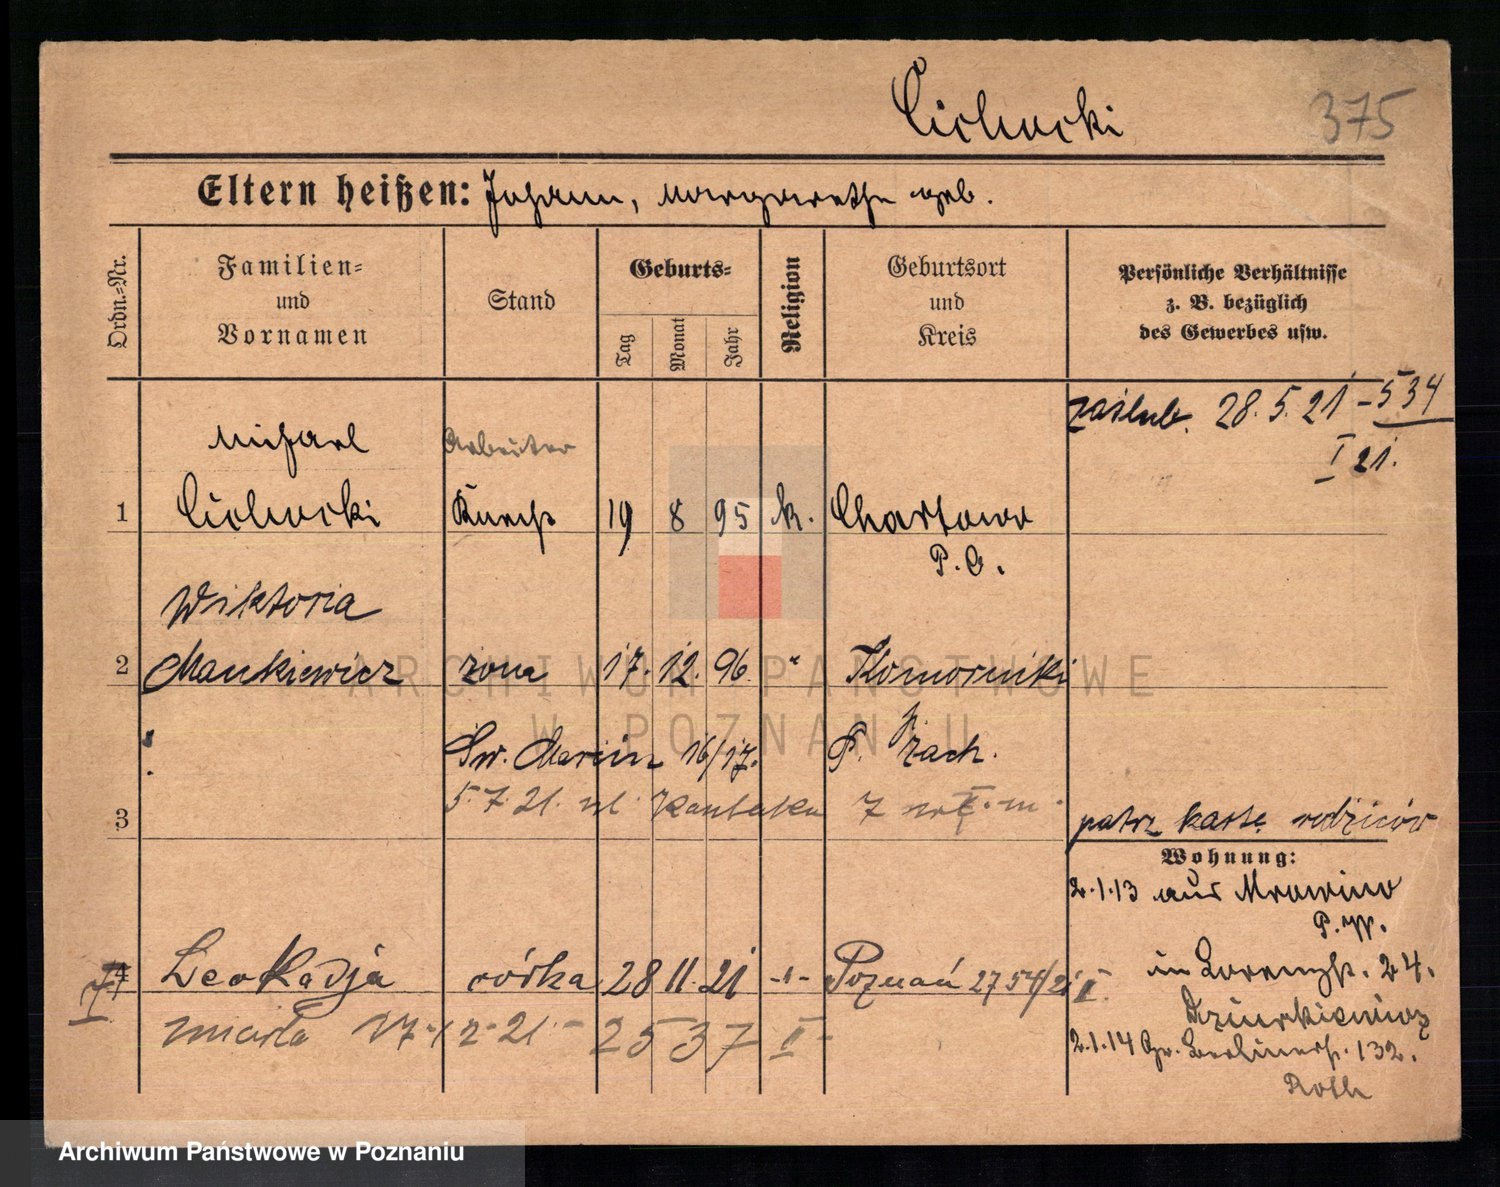 Cichocki
375
Eltern heißen: Johann, Margarethe geb.
Ordn.=Nr.
Familien=
und
Vornamen
Stand
Geburts=
Tag
Monat
Jahr
Religion
Geburtsort
und
Kreis
Persönliche Verhältnisse
z. B. bezüglich
des Gewerbes usw.
zaślub. 28.5.21 - 534
I 21.
Michael Arbeiter
1 Cichocki Knecht 19 8 95 k. Chartowo
P. O.
Wiktoria
2 Mankiewicz żona 17. 12. 96. " Komorniki
Św. Marcin 16/17. P. zach.
5.7.21. ul. Kantaka 7
3
patrz kartę rodziców
Wohnung:
2.1.13 aus Mrowino
P. W.
4 Leokadja córka 28 11 21 -"- Poznań 2754/21 II
in Lorenzstr. 24.
zmarła 17-12-21- 2537 II-
Dziurkiewicz
2.1.14 Gr. Berlinerstr. 132.
Roth
ARCHIWUM PAŃSTWOWE
W POZNANIU
Archiwum Państwowe w Poznaniu